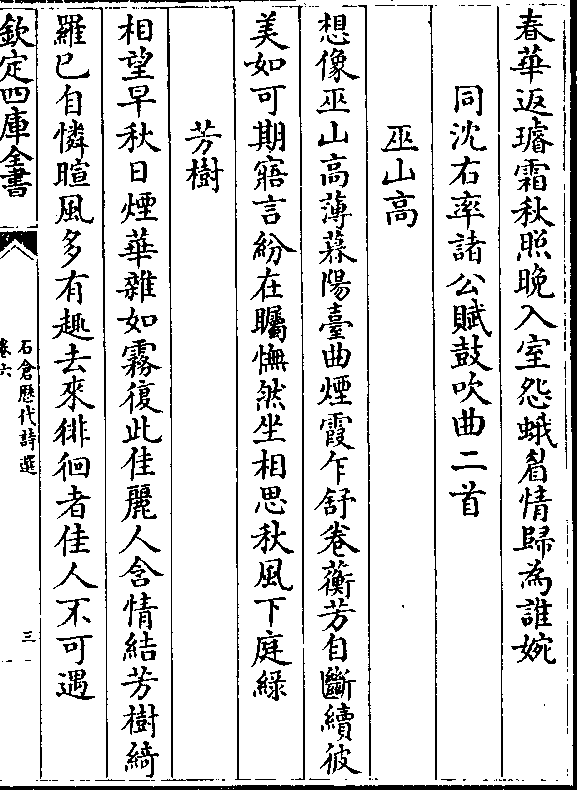 春華返璿霜秋照晚入室怨蛾眉情歸為誰婉
同沈右率諸公賦鼓吹曲二首
巫山高
想像巫山高薄暮陽臺曲煙霞乍舒卷蘅芳自斷續彼
美如可期寤言紛在矚憮然坐相思秋風下庭綠
芳樹
相望早秋日煙華雜如霧復此佳麗人含情結芳樹綺
羅已自憐暄風多有趣去來徘徊者佳人不可遇
欽定四庫全書
石倉歷代詩選
卷六
三